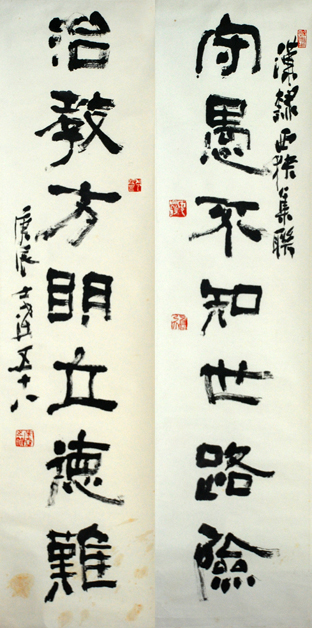 漢隸西狹集聯
守愚不知世路險
治教方明立德難
庚辰 五十八